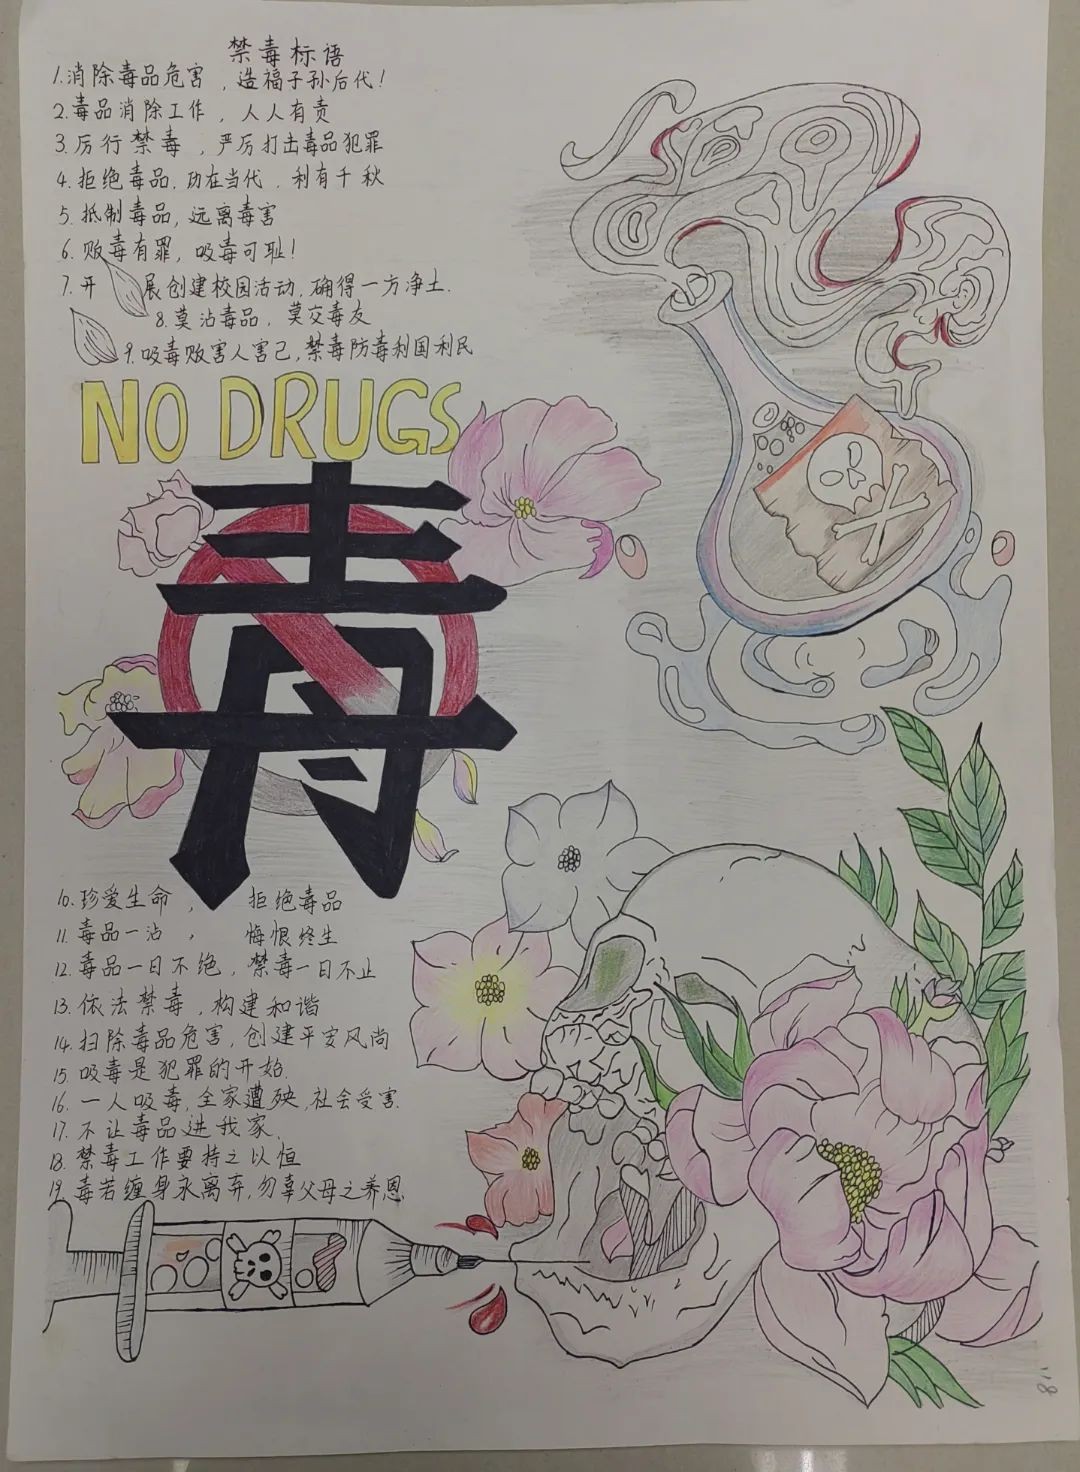 禁毒标语
1.消除毒品危害，造福子孙后代！
2.毒品消除工作，人人有责
3.厉行禁毒，严厉打击毒品犯罪
4.拒绝毒品，功在当代，利有千秋
5.抵制毒品，远离毒害
6.贩毒有罪，吸毒可耻！
7.开展创建校园活动，确得一方净土.
8.莫沾毒品，莫交毒友
9.吸毒贩害人害己，禁毒防毒利国利民
NO DRUGS
毒
10.珍爱生命，拒绝毒品
11.毒品一沾，悔恨终生
12.毒品一日不绝，禁毒一日不止
13.依法禁毒，构建和谐
14.扫除毒品危害，创建平安风尚
15.吸毒是犯罪的开始.
16.一人吸毒，全家遭殃，社会受害.
17.不让毒品进我家.
18.禁毒工作要持之以恒
19.毒若缠身永离弃，勿辜父母之养恩